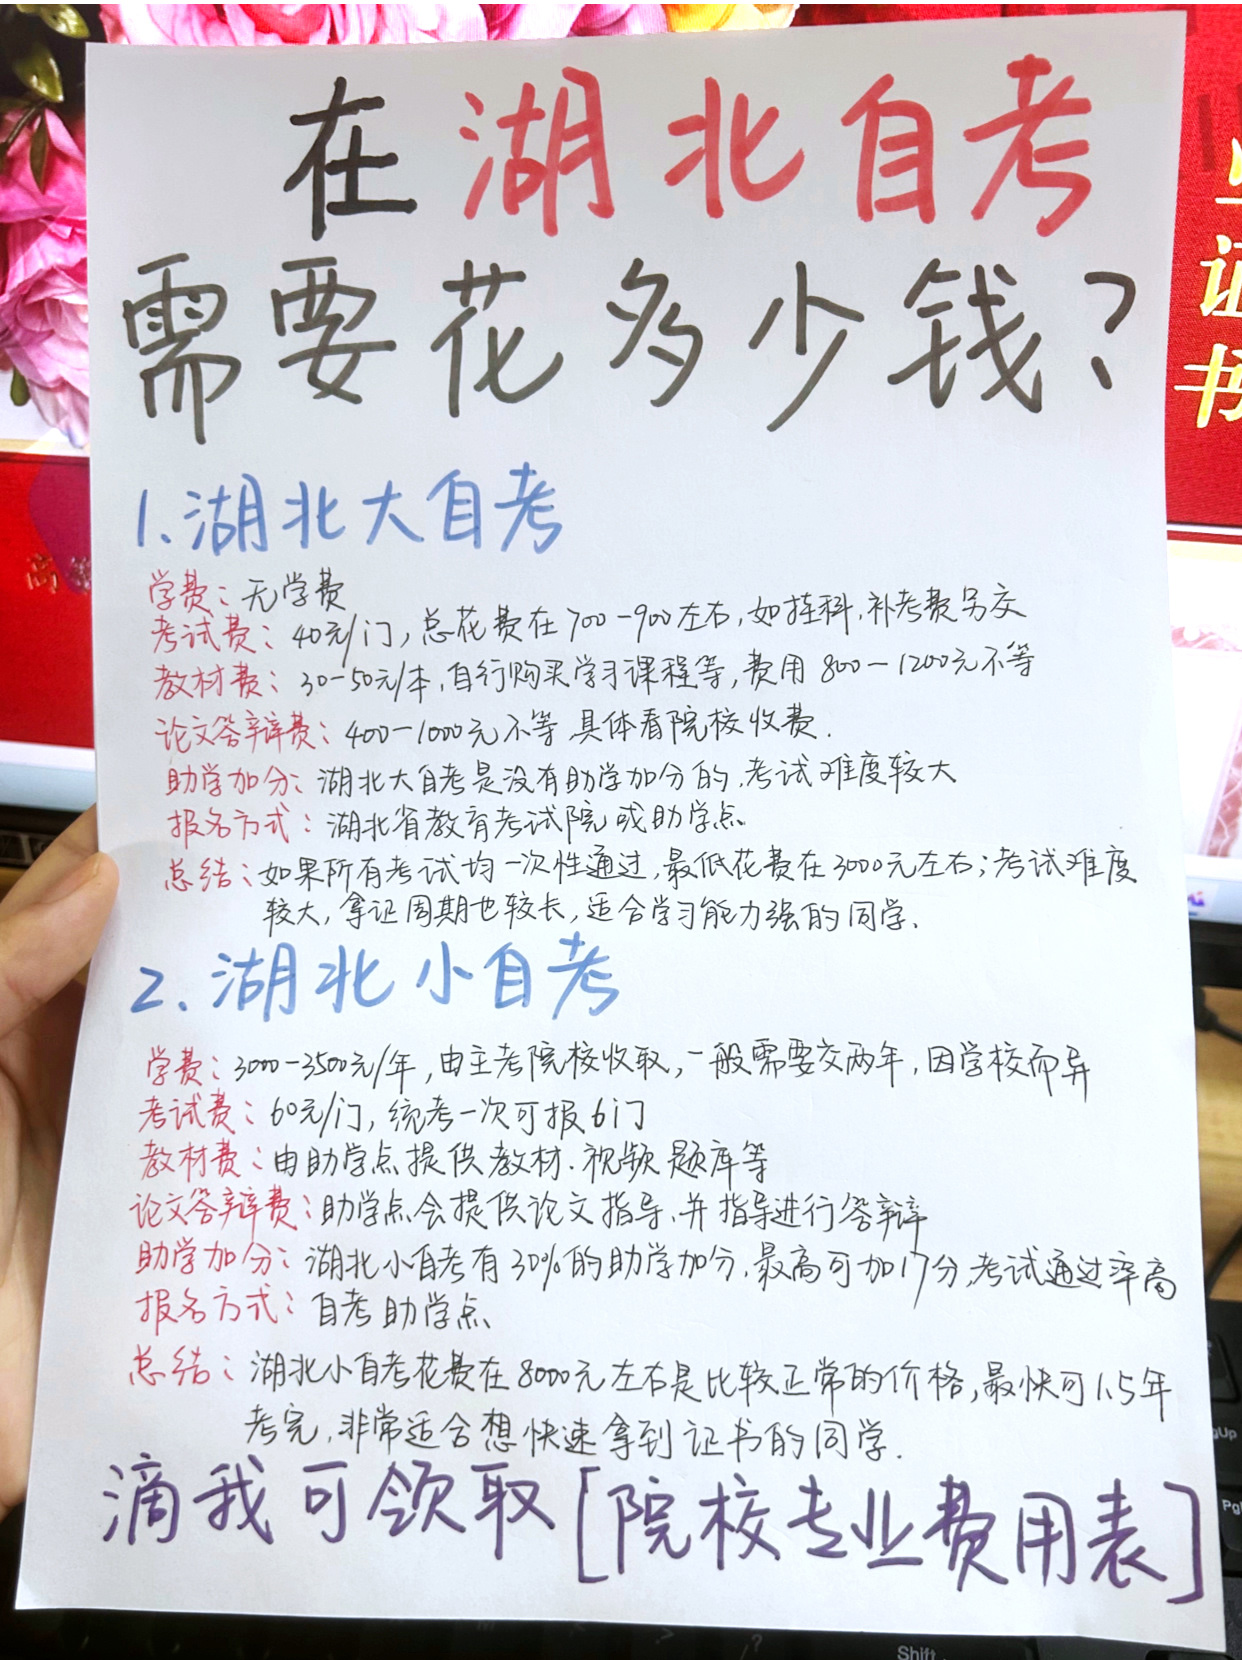 在湖北自考
需要花多少钱?
1.湖北大自考
学费:无学费
考试费:40元/门,总花费在700-900左右,如挂科,补考费另交
教材费:30-50元/本,自行购买学习课程等,费用800-1200元不等
论文答辩费:400-1000元不等 具体看院校收费.
助学加分:湖北大自考是没有助学加分的,考试难度较大
报名方式:湖北省教育考试院或助学点.
总结:如果所有考试均一次性通过,最低花费在3000元左右;考试难度
较大,拿证周期也较长,适合学习能力强的同学.
2.湖北小自考
学费:3000-3500元/年,由主考院校收取,一般需要交两年,因学校而异
考试费:60元/门,统考一次可报6门
教材费:由助学点提供教材.视频题库等
论文答辩费:助学点会提供论文指导,并指导进行答辩
助学加分:湖北小自考有30%的助学加分,最高可加17分,考试通过率高
报名方式:自考助学点
总结:湖北小自考花费在8000元左右是比较正常的价格,最快可1.5年
考完,非常适合想快速拿到证书的同学.
滴我可领取[院校专业费用表]
证
书
Shift
PgUp